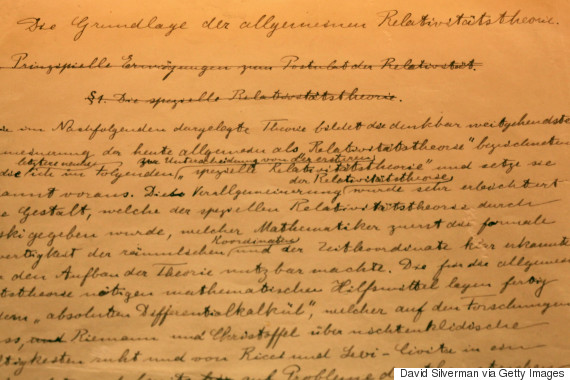 Die Grundlage der allgemeinen Relativitätstheorie.
Prinzipielle Erwägungen zum Postulat der Relativität.
§1. Die spezielle Relativitätstheorie.
im Nachfolgenden dargelegte Theorie bildet die denkbar weitgehendste
der heute allgemein als „Relativitätstheorie" bezeichneten
letztere zur Unterscheidung von der ersteren
im folgenden „spezielle Relativitätstheorie" und setze sie
der Relativitätstheorie
voraus. Die Verallgemeinerung wurde sehr erleichtert
Gestalt, welche der speziellen Relativitätstheorie durch
ski gegeben wurde, welcher Mathematiker zuerst die formale
Koordinaten
wertigkeit der räumlichen und der Zeitkoordinate klar erkannte
den Aufbau der Theorie nutzbar machte. Die für die allgemeine
tstheorie nötigen mathematischen Hilfsmittel lagen fertig
„absoluten Differentialkalkül", welcher auf den Forschungen
und Riemann und Christoffel über nichteuklidische
tigkeiten ruht und von Ricci und Levi-Civita in ein
auf Probleme
David Silverman via Getty Images